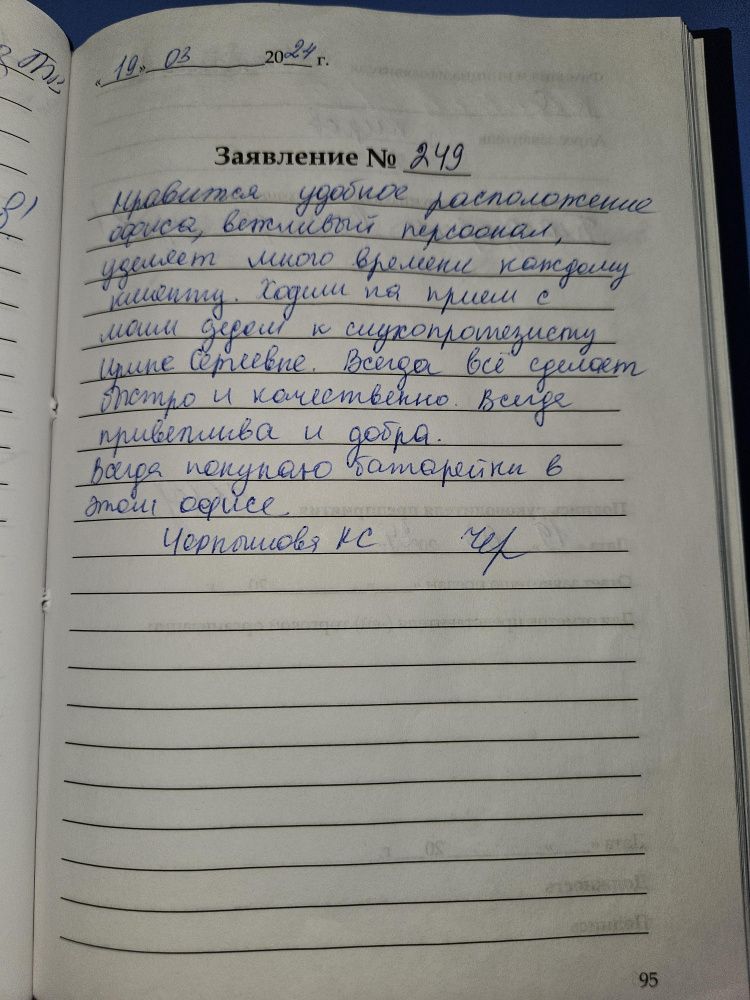 «19» 03 2024 г.
Заявление № 249
Нравится удобное расположение
офиса, вежливый персонал,
уделяет много времени каждому
клиенту. Ходим на прием с
моим дедом к слухопротезисту
Ирине Сергеевне. Всегда всё сделает
быстро и качественно. Всегда
приветлива и добра.
Всегда покупаю батарейки в
этом офисе.
КС
95